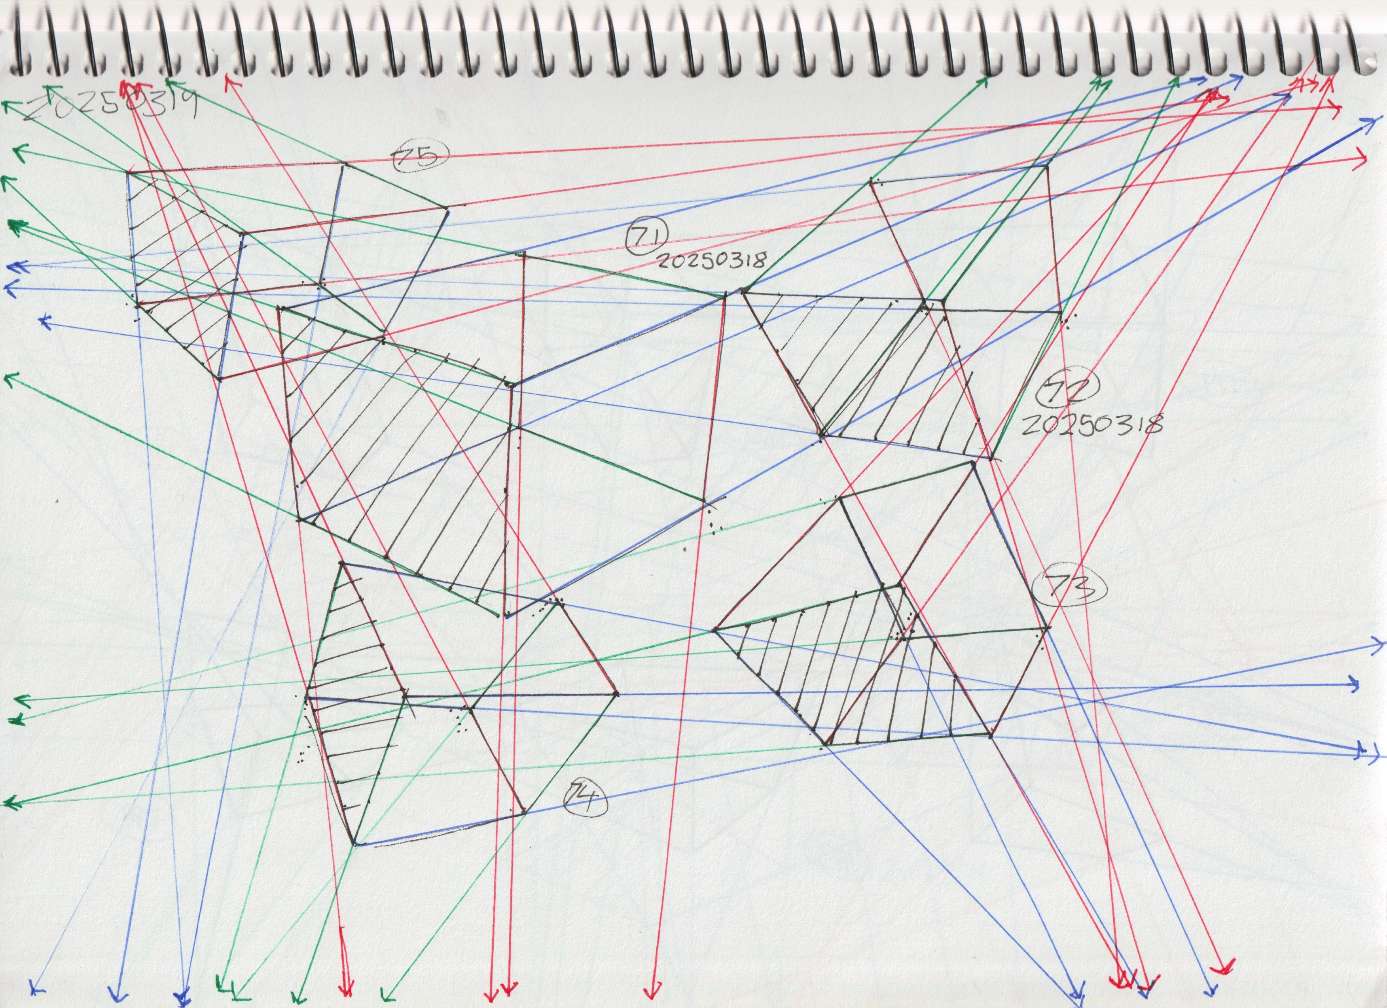 20250319
75
71
20250318
72
20250318
73
74